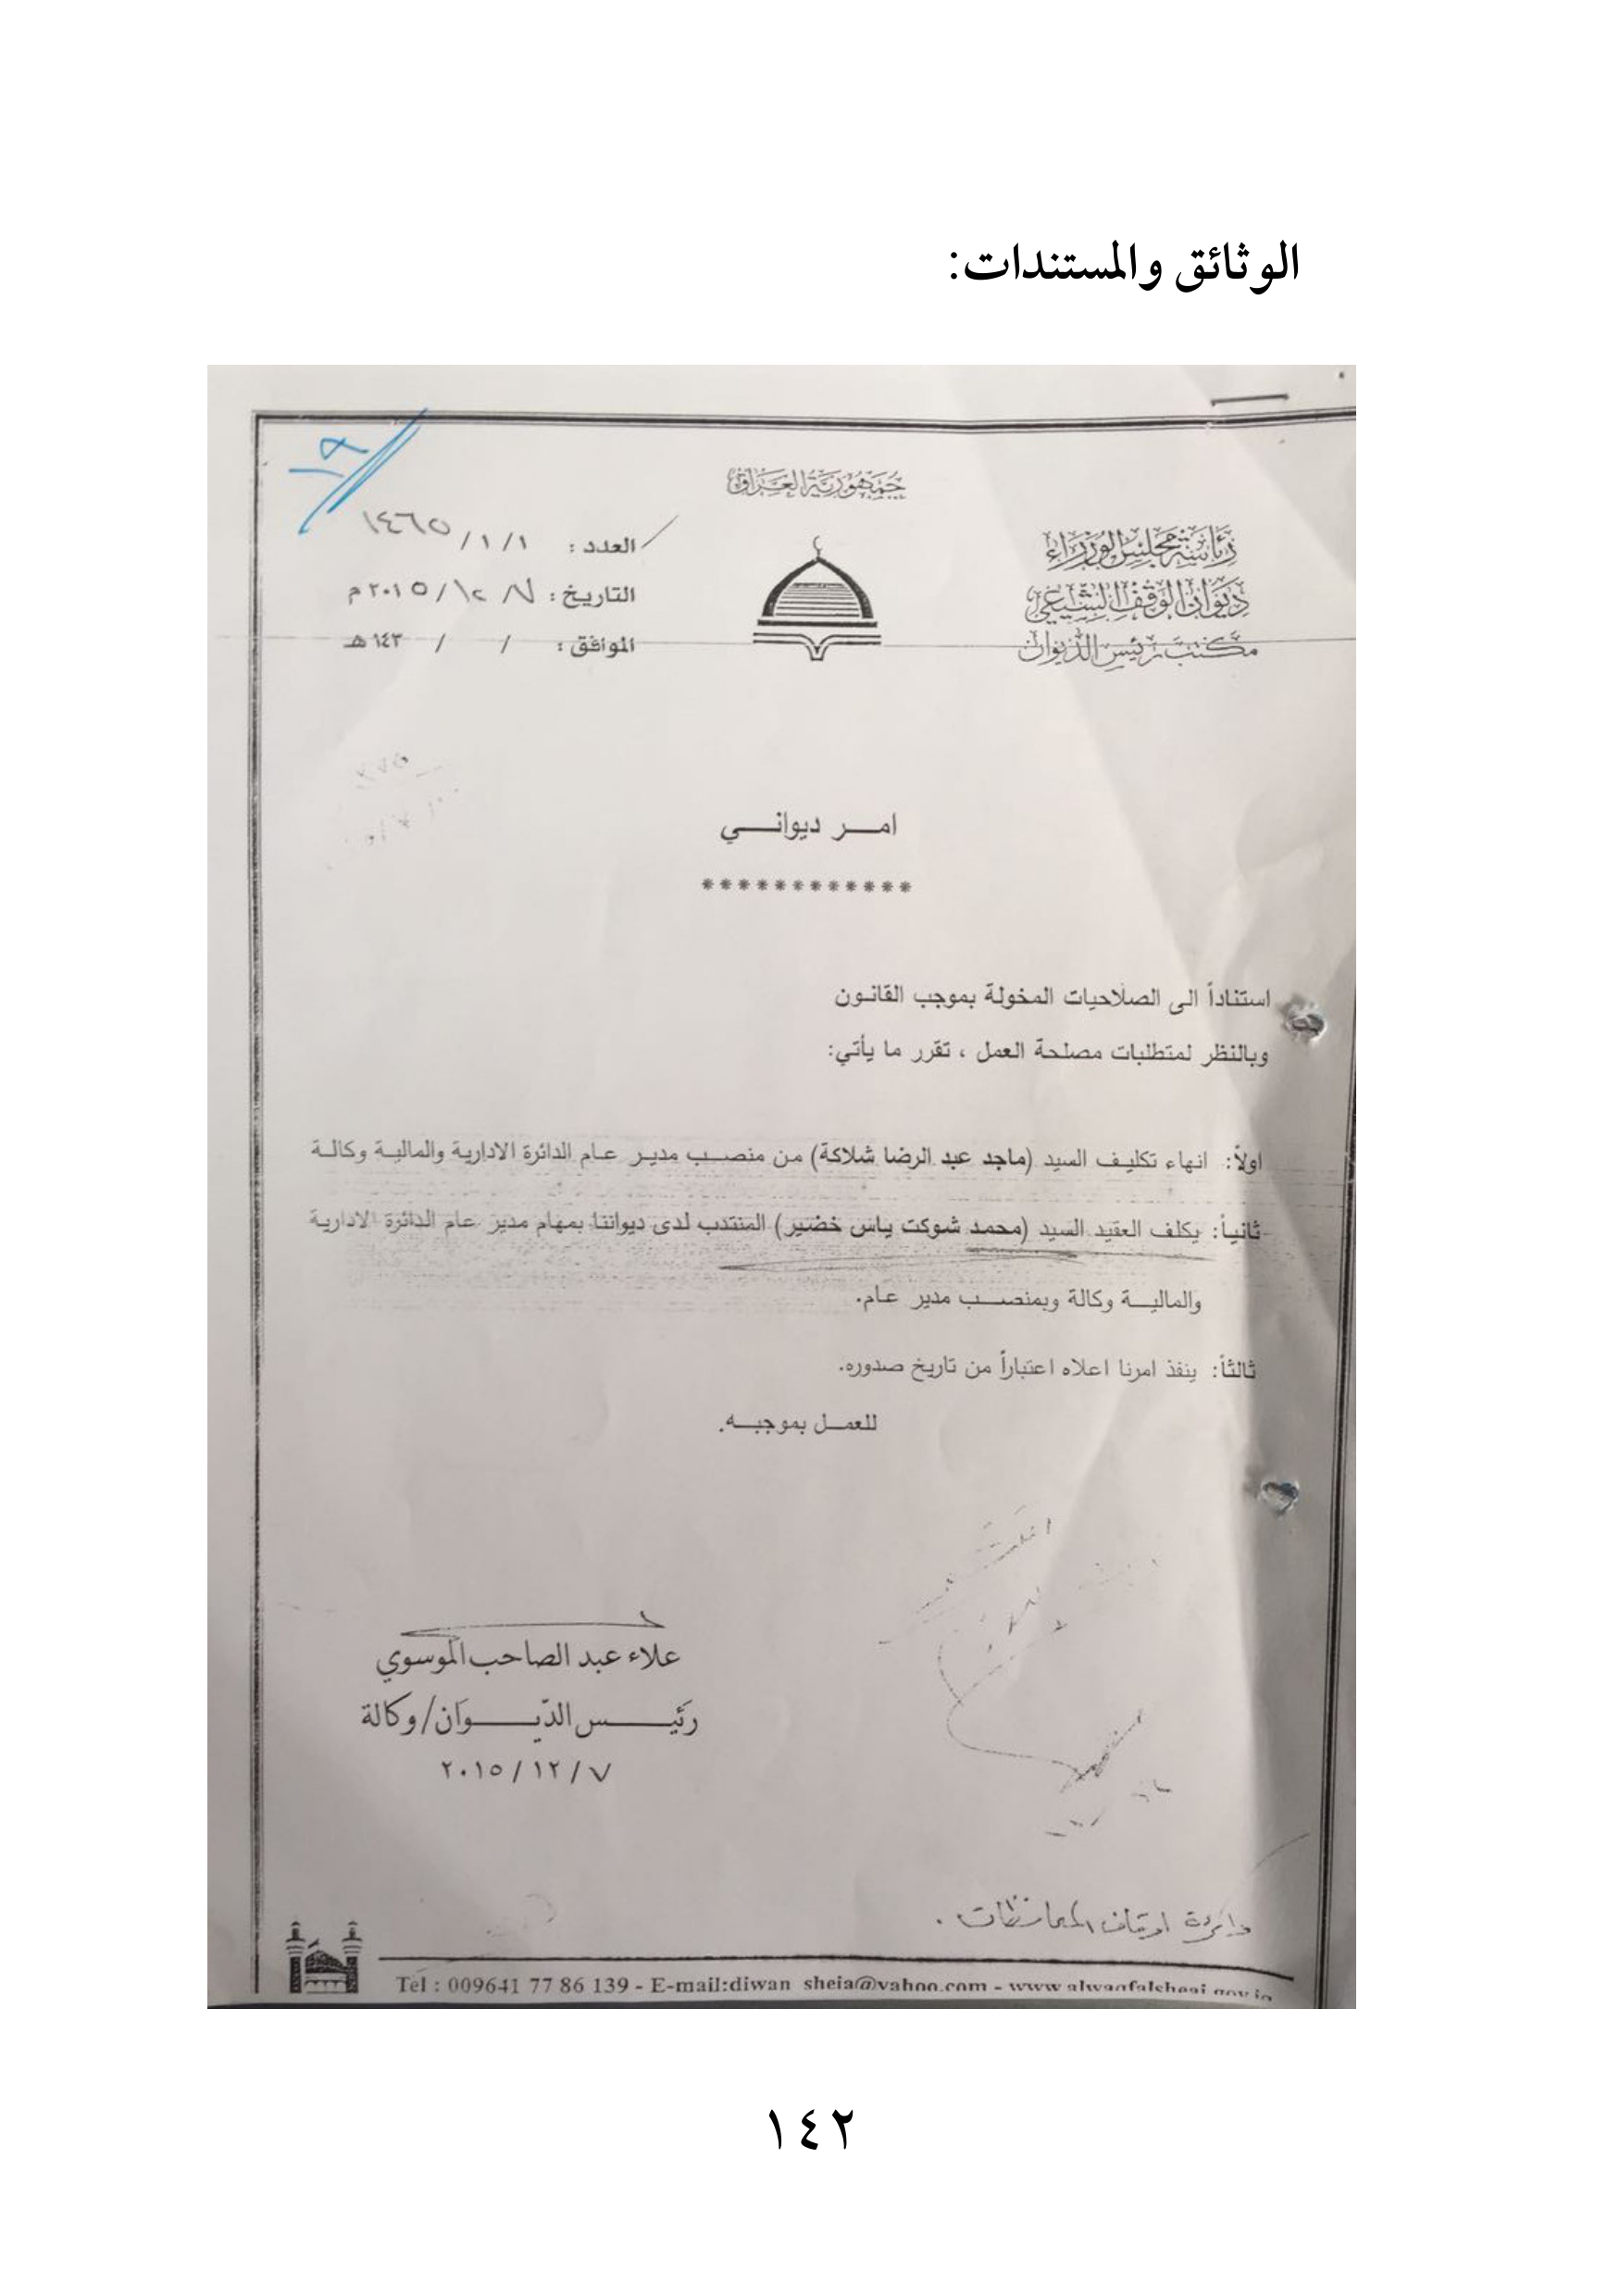 الوثائق والمستندات:
جمهورية العراق
رئاسة مجلس الوزراء
ديوان الوقف الشيعي
مكتب رئيس الديوان
العدد : ١/١/ ١٤٦٥
التاريخ : ٧/ ١٢/ ٢٠١٥ م
الموافق : / / ١٤٣ هـ
١٩
امر ديواني
************
استناداً الى الصلاحيات المخولة بموجب القانون
وبالنظر لمتطلبات مصلحة العمل ، تقرر ما يأتي:
اولاً: انهاء تكليف السيد (ماجد عبد الرضا شلاكة) من منصب مدير عام الدائرة الادارية والمالية وكالة
ثانياً: يكلف العقيد السيد (محمد شوكت ياس خضير) المنتدب لدى ديواننا بمهام مدير عام الدائرة الادارية
والمالية وكالة وبمنصب مدير عام.
ثالثاً: ينفذ امرنا اعلاه اعتباراً من تاريخ صدوره.
للعمل بموجبه.
علاء عبد الصاحب الموسوي
رئيس الديوان/وكالة
٢٠١٥/١٢/٧
دائرة اوقاف المحافظات .
Tel : 009641 77 86 139 - E-mail:diwan sheia@yahoo.com - www alwaqfalsheai gov iq
١٤٢